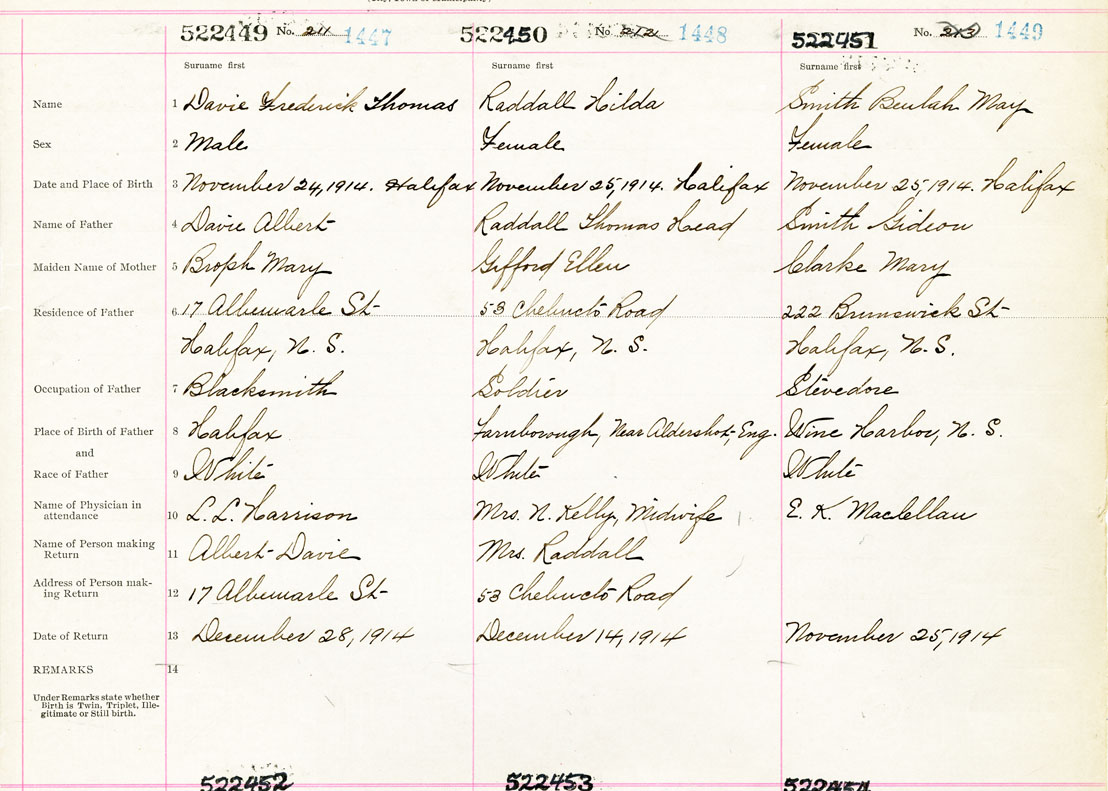 (City, Town or Municipality)
522449 No. 211 1447 522450 No. 212 1448 522451 No. 213 1449
Surname first Surname first Surname first
Name 1 Davie Frederick Thomas Raddall Hilda Smith Beulah May
Sex 2 Male Female Female
Date and Place of Birth 3 November 24, 1914. Halifax November 25, 1914. Halifax November 25, 1914. Halifax
Name of Father 4 Davie Albert Raddall Thomas Head Smith Gideon
Maiden Name of Mother 5 Broph Mary Gifford Ellen Clarke Mary
Residence of Father 6 17 Albemarle St 53 Chebucto Road 222 Brunswick St
Halifax, N. S. Halifax, N. S. Halifax, N. S.
Occupation of Father 7 Blacksmith Soldier Stevedore
Place of Birth of Father 8 Halifax Farnborough, Near Aldershot, Eng. Wine Harbor, N. S.
and
Race of Father 9 White White White
Name of Physician in
attendance 10 L. L. Harrison Mrs. N. Kelly, Midwife E. K. Maclellan
Name of Person making
Return 11 Albert Davie Mrs. Raddall
Address of Person mak-
ing Return 12 17 Albemarle St 53 Chebucto Road
Date of Return 13 December 28, 1914 December 14, 1914 November 25, 1914
REMARKS 14
Under Remarks state whether
Birth is Twin, Triplet, Ille-
gitimate or Still birth.
522452 522453 522454